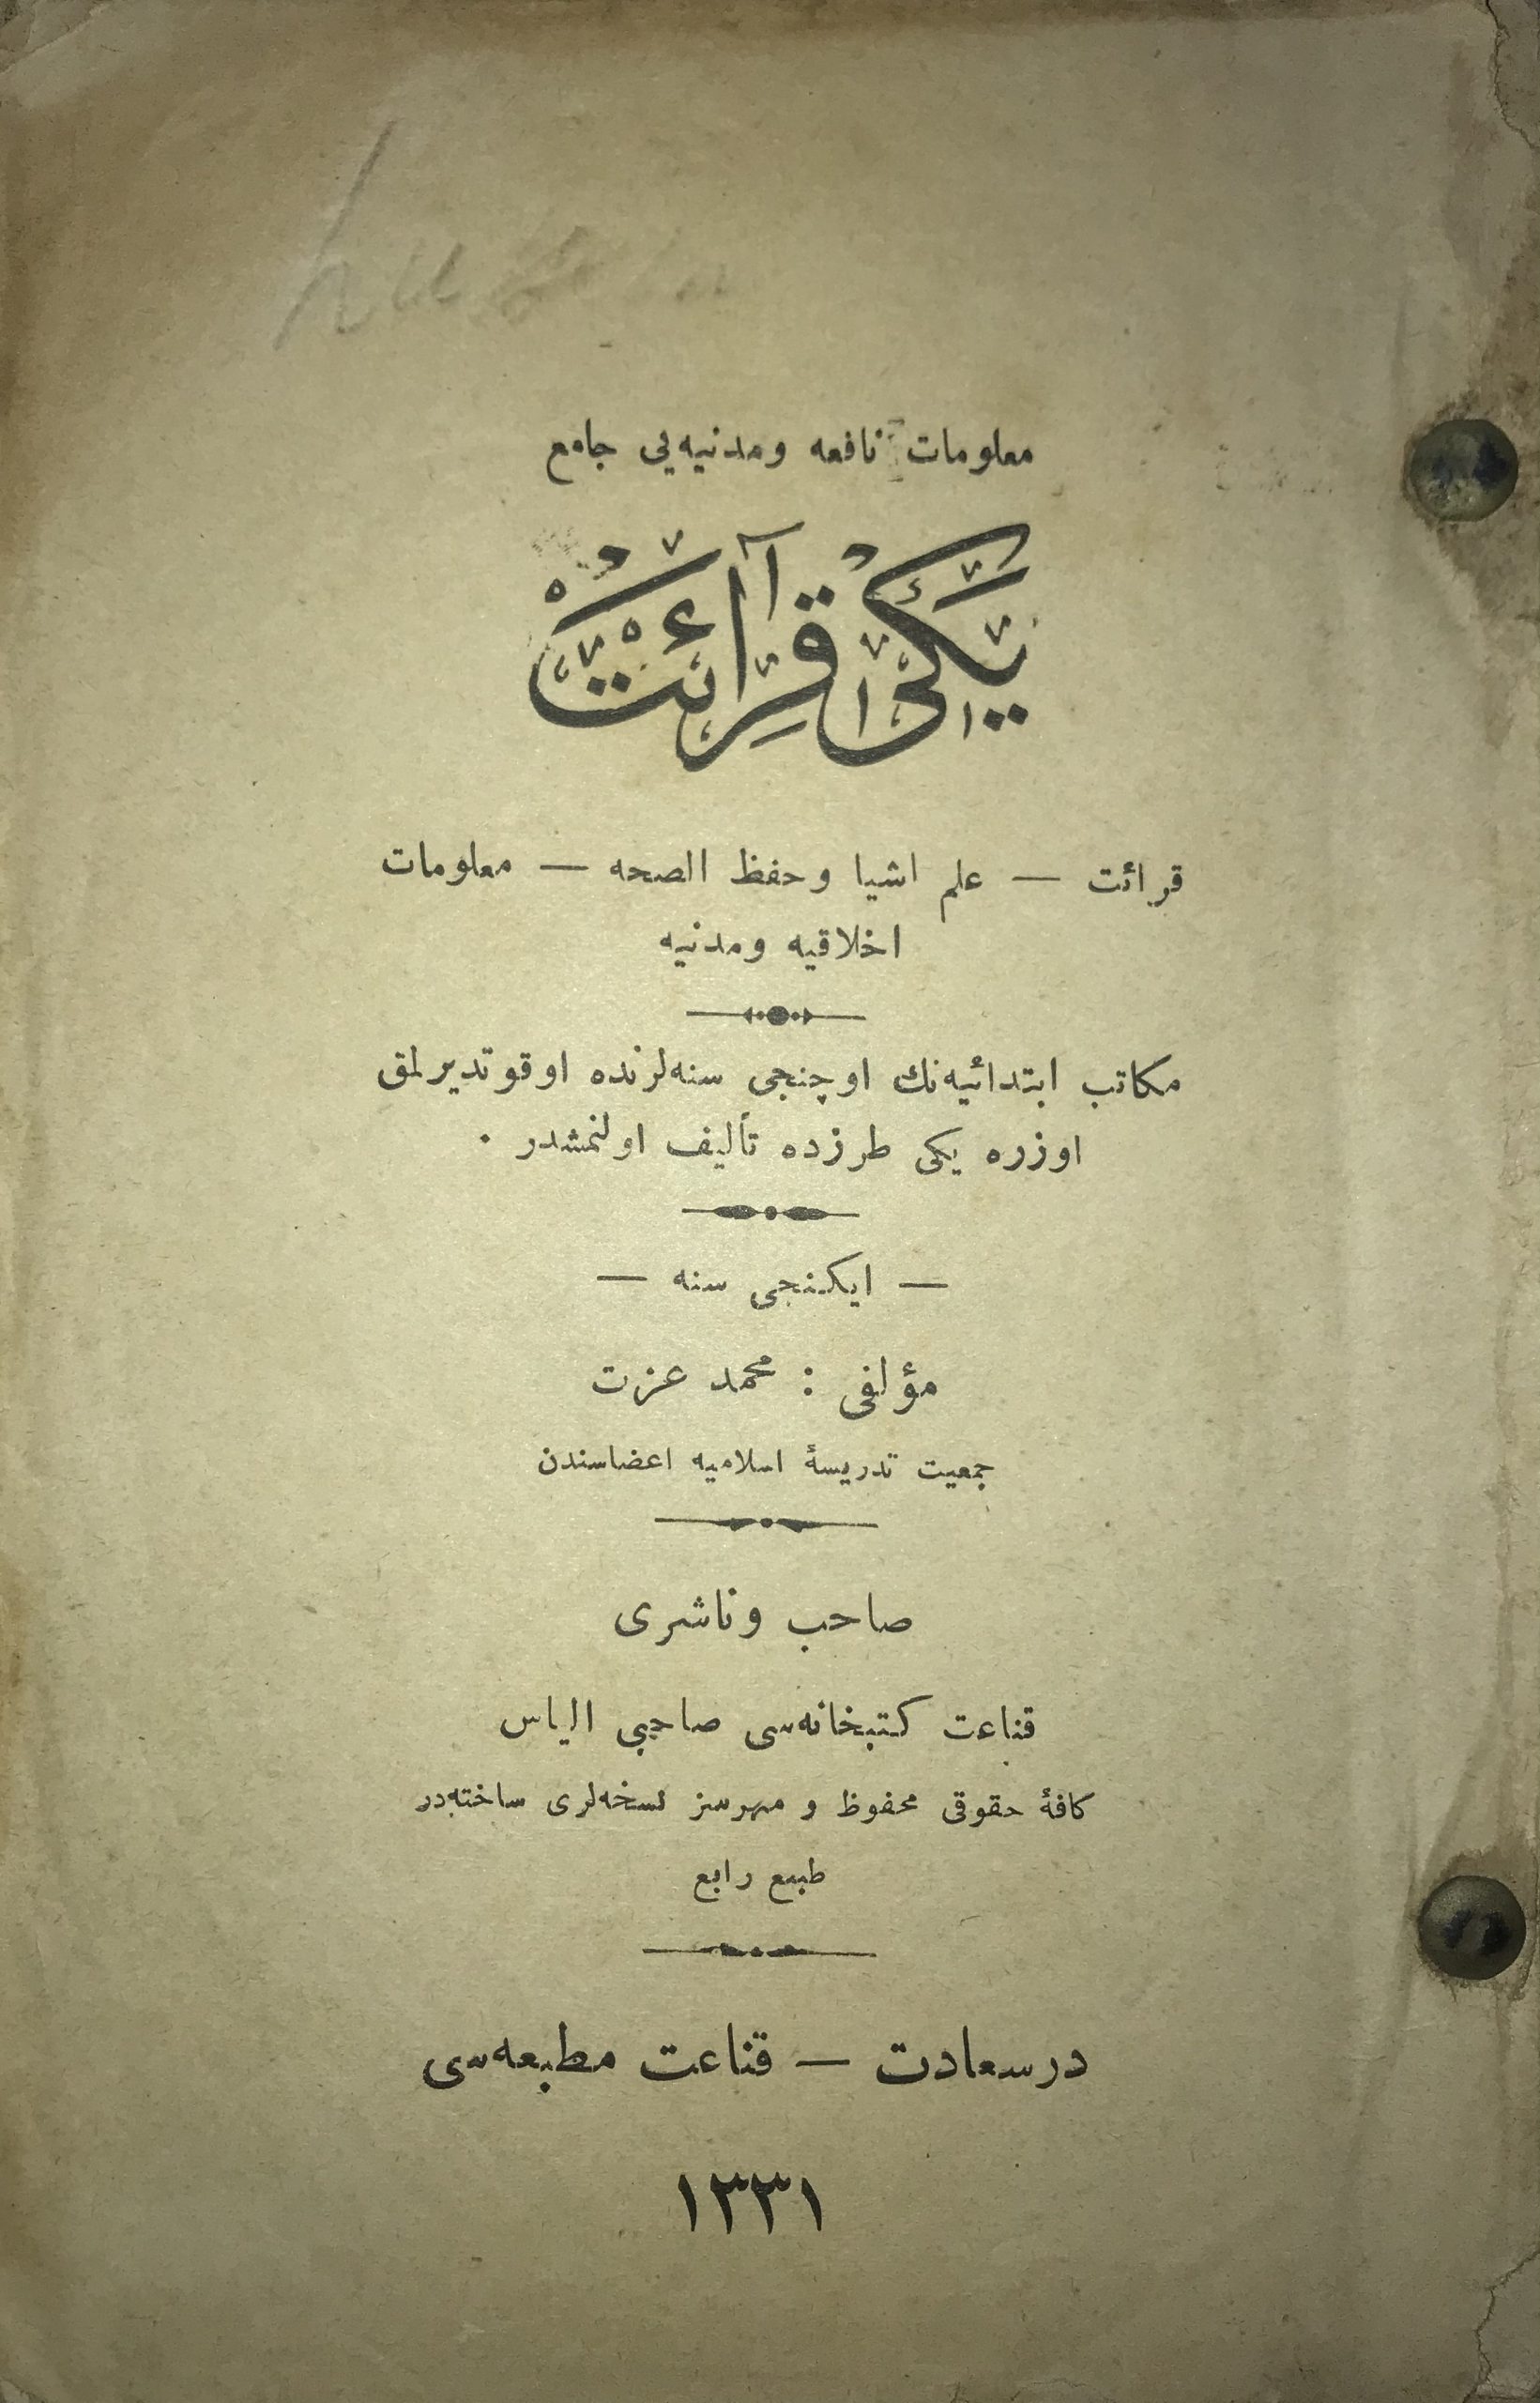 معلومات نافعه ومدنیه‌یی جامع
یکی قرائت
قرائت — علم اشیا وحفظ الصحه — معلومات
اخلاقیه ومدنیه
مکاتب ابتدائیه‌نك اوچنجی سنه‌لرنده اوقوتدیرلمق
اوزره یکی طرزده تألیف اولنمشدر .
— ایکنجی سنه —
مؤلفی : محمد عزت
جمعیت تدریسۀ اسلامیه اعضاسندن
صاحب وناشری
قناعت کتبخانه‌سی صاحبی الیاس
کافۀ حقوقی محفوظ و مهرسز نسخه‌لری ساخته‌در
طبع رابع
درسعادت — قناعت مطبعه‌سی
١٣٣١